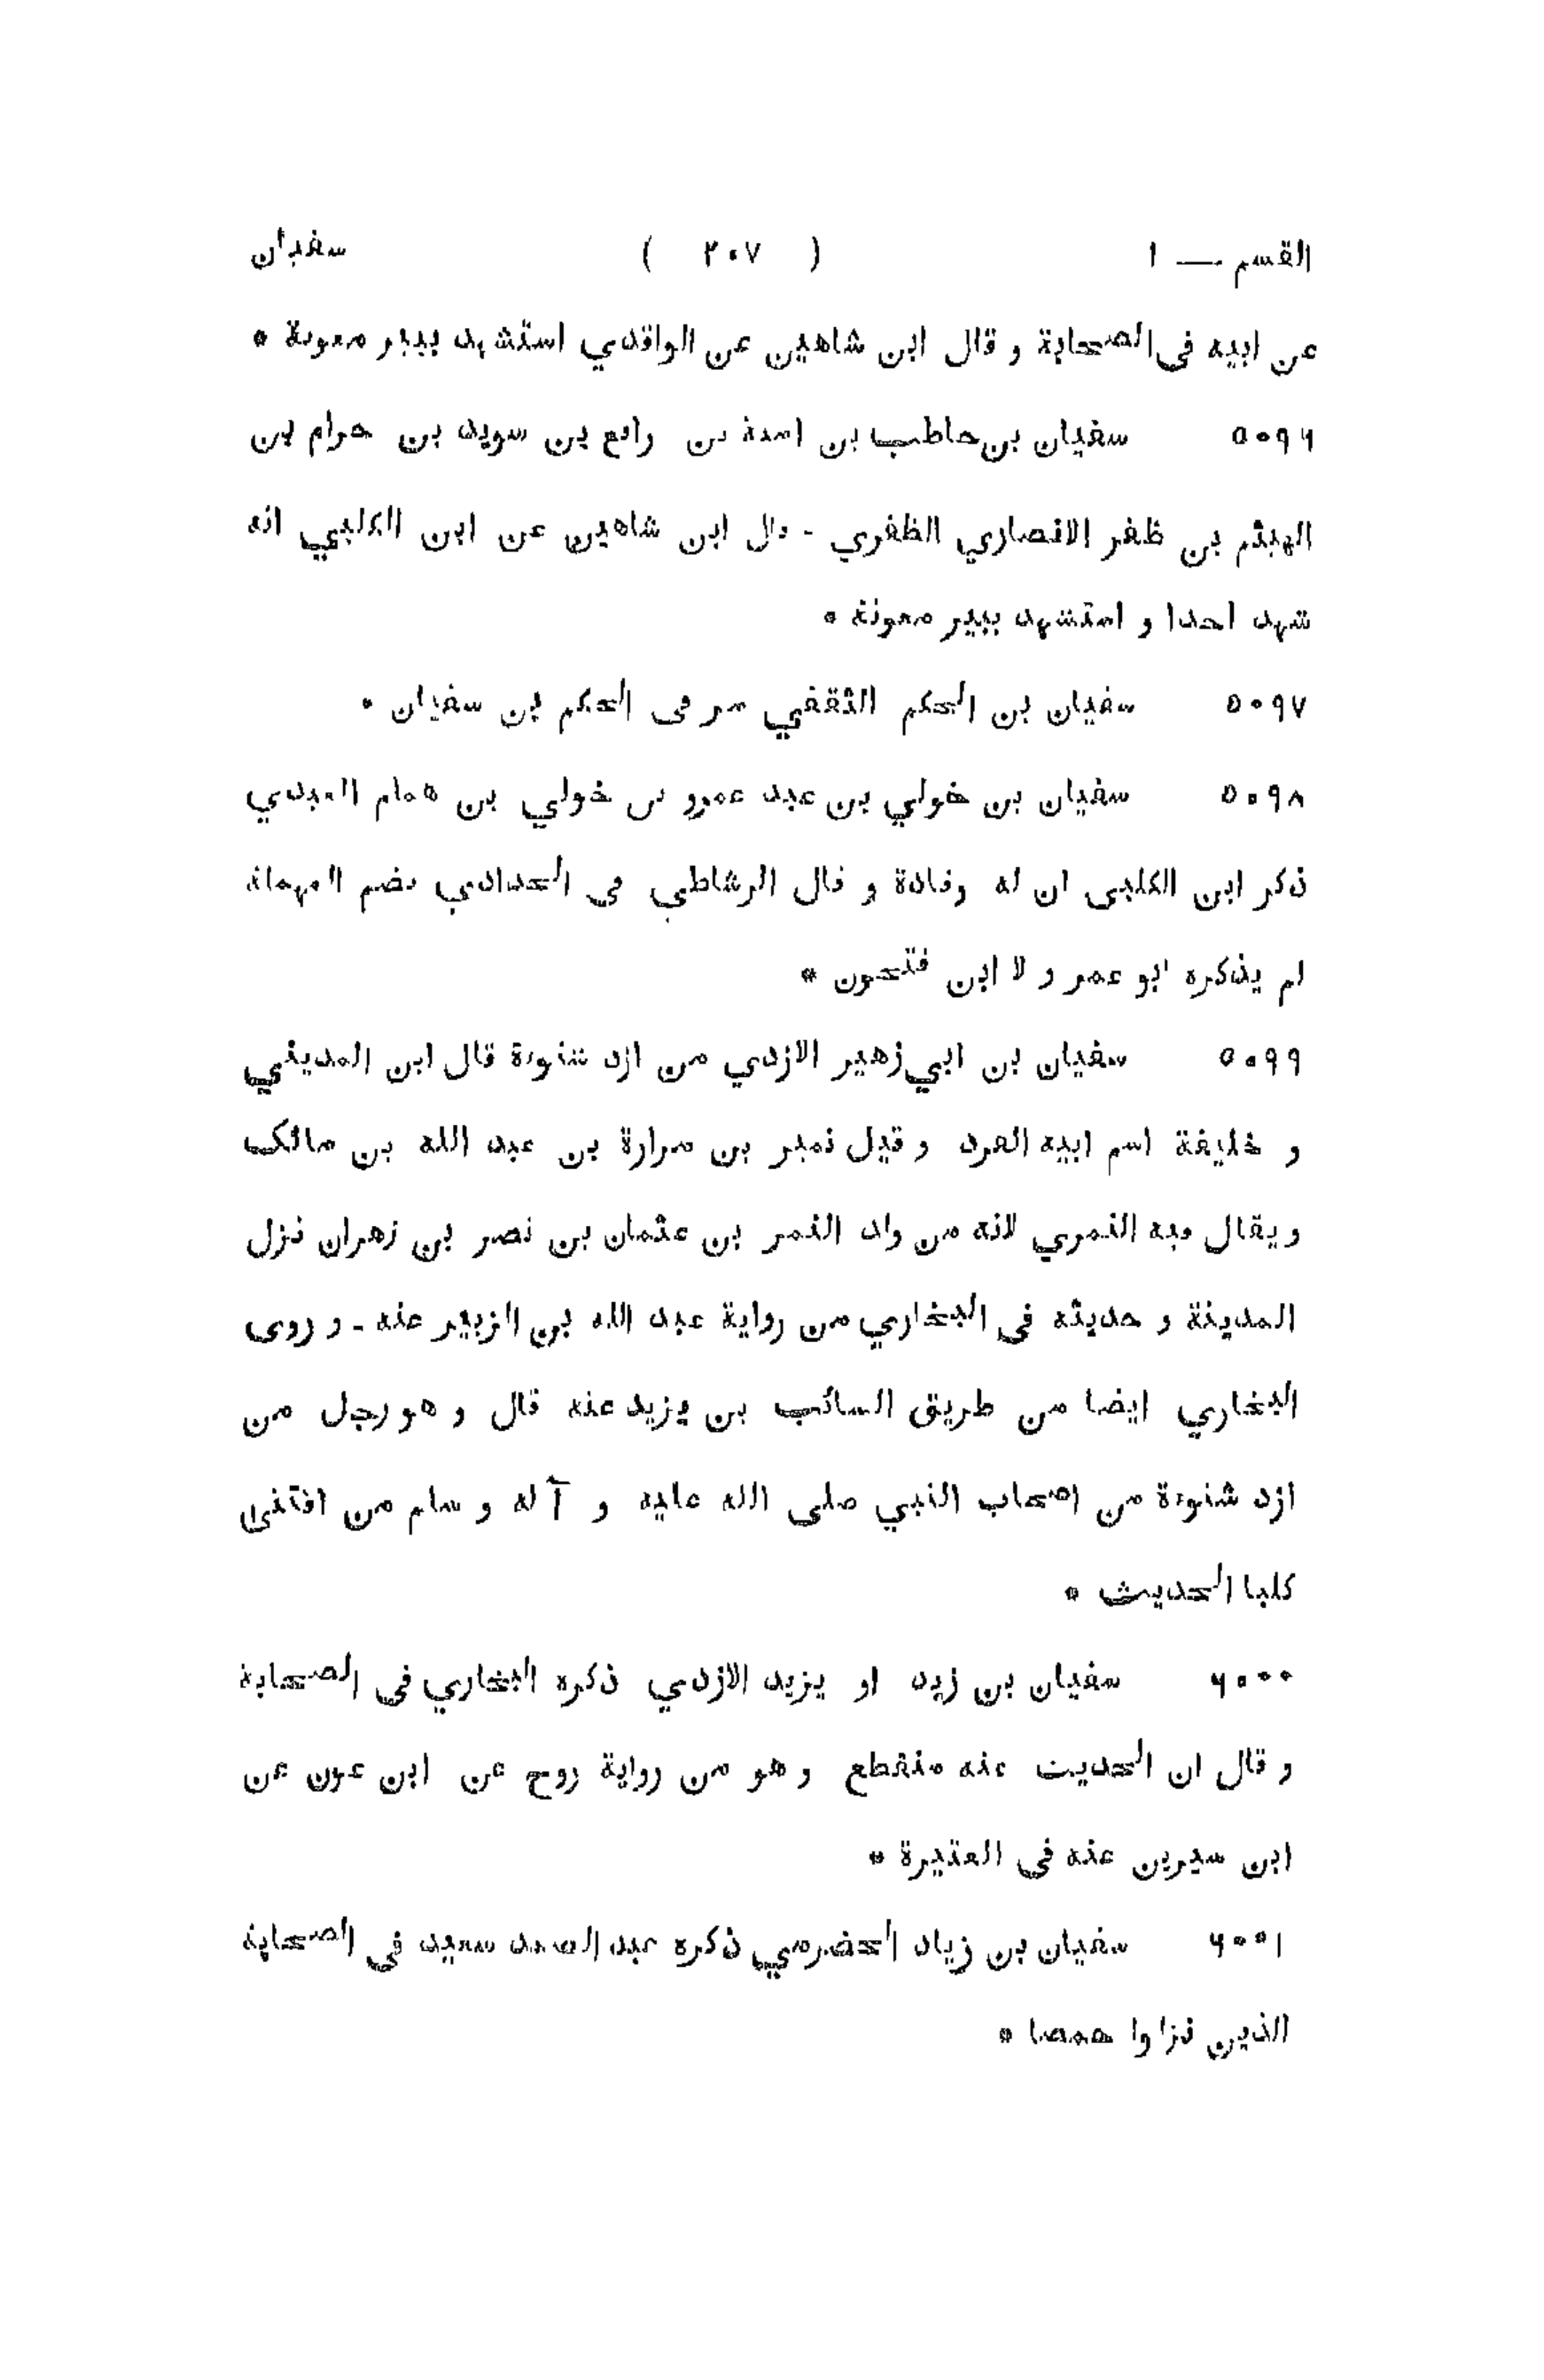 القسم — ١ ( ٢٠٧ ) سفيان
عن ابيه فى الصحابة و قال ابن شاهين عن الواقدي استشهد ببير معونة *
٥٠٩٦ سفيان بن حاطب بن امية بن رافع بن سويد بن حرام بن
الهيثم بن ظفر الانصاري الظفري - قال ابن شاهين عن ابن الكلبي انه
شهد احدا و استشهد ببير معونة *
٥٠٩٧ سفيان بن الحكم الثقفي مر فى الحكم بن سفيان *
٥٠٩٨ سفيان بن خولي بن عبد عمرو بن خولي بن همام العبدي
ذكر ابن الكلبى ان له وفادة و قال الرشاطي فى الحدادي بضم المهملة
لم يذكره ابو عمر و لا ابن فتحون *
٥٠٩٩ سفيان بن ابي زهير الازدي من ازد شنوءة قال ابن المديني
و خليفة اسم ابيه القرد و قيل نمير بن مرارة بن عبد الله بن مالك
و يقال فيه النمري لانه من ولد النمر بن عثمان بن نصر بن زهران نزل
المدينة و حديثه فى البخاري من رواية عبد الله بن الزبير عنه - و روى
البخاري ايضا من طريق السائب بن يزيد عنه قال و هو رجل من
ازد شنوءة من اصحاب النبي صلى الله عليه و آله و سلم من اقتنى
كلبا الحديث *
٦٠٠٠ سفيان بن زيد او يزيد الازدي ذكره البخاري فى الصحابة
و قال ان الحديث عنه منقطع و هو من رواية روح عن ابن عون عن
ابن سيرين عنه فى العتيرة *
٦٠٠١ سفيان بن زياد الحضرمي ذكره عبد الصمد سعيد فى الصحابة
الذين نزلوا حمصا *